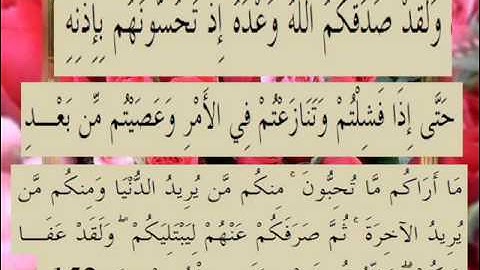 وَلَقَدْ صَدَقَكُمُ اللَّهُ وَعْدَهُ إِذْ تَحُسُّونَهُم بِإِذْنِهِ
حَتَّى إِذَا فَشِلْتُمْ وَتَنَازَعْتُمْ فِي الْأَمْرِ وَعَصَيْتُم مِّن بَعْـــدِ
مَا أَرَاكُم مَّا تُحِبُّونَ ۚ مِنكُم مَّن يُرِيدُ الدُّنْيَا وَمِنكُم مَّن
يُرِيدُ الآخِرَةَ ۚ ثُمَّ صَرَفَكُمْ عَنْهُمْ لِيَبْتَلِيَكُمْ ۖ وَلَقَدْ عَفَـــا